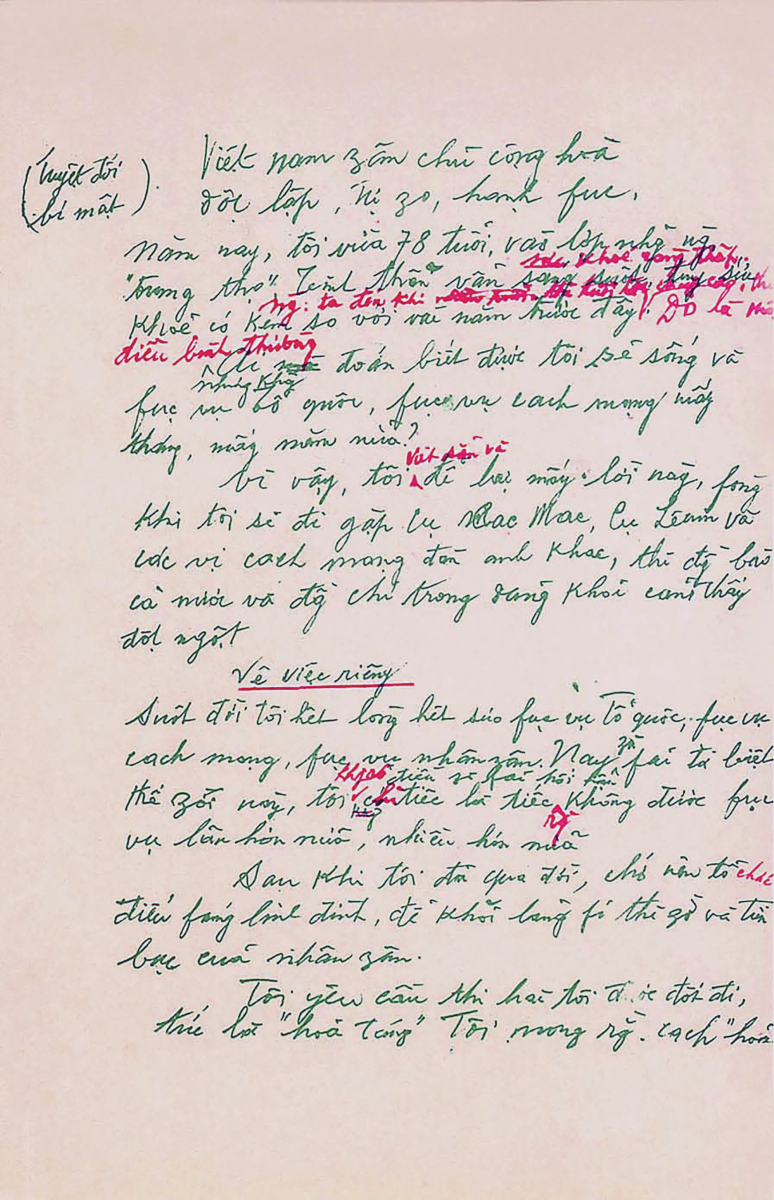 (Tuyệt đối
bí mật).
Việt nam zân chủ cộng hoà
độc lập, tự zo, hạnh fúc.
Năm nay, tôi vừa 78 tuổi, vào lớp nhg ng
sức khoẻ
"trung thọ". Tinh thần vẫn sáng suốt, tuy sức
ng: ta đến khi
khoẻ có kém so với vài năm trước đây. Đó là
điều bình thường
Ai mà đoán biết được tôi sẽ sống và
fục vụ tổ quốc, fục vụ cách mạng mấy
tháng, mấy năm nữa?
viết sẵn và
Vì vậy, tôi để lại mấy lời này, fòng
khi tôi sẽ đi gặp Cụ Các Mác, Cụ Lênin và
các vị cách mạng đàn anh khác, thì đg bào
cả nước và đg chí trong đảng khỏi cảm thấy
đột ngột.
Về việc riêng
Suốt đời tôi hết lòng hết sức fục vụ Tổ quốc, fục vụ
zù
cách mạng, fục vụ nhân zân. Nay fải từ biệt
khg có điều gì fải hối hận
thế zới này, tôi chỉ tiếc là tiếc không được fục
rg
vụ lâu hơn nữa, nhiều hơn nữa
Sau khi tôi đã qua đời, chớ nên tổ chức
điếu fúng linh đình, để khỏi lãng fí thì zờ và tiền
bạc của nhân zân.
Tôi yêu cầu thi hài tôi được đốt đi,
tức là "hoả táng" Tôi mong rg. cách "hoả